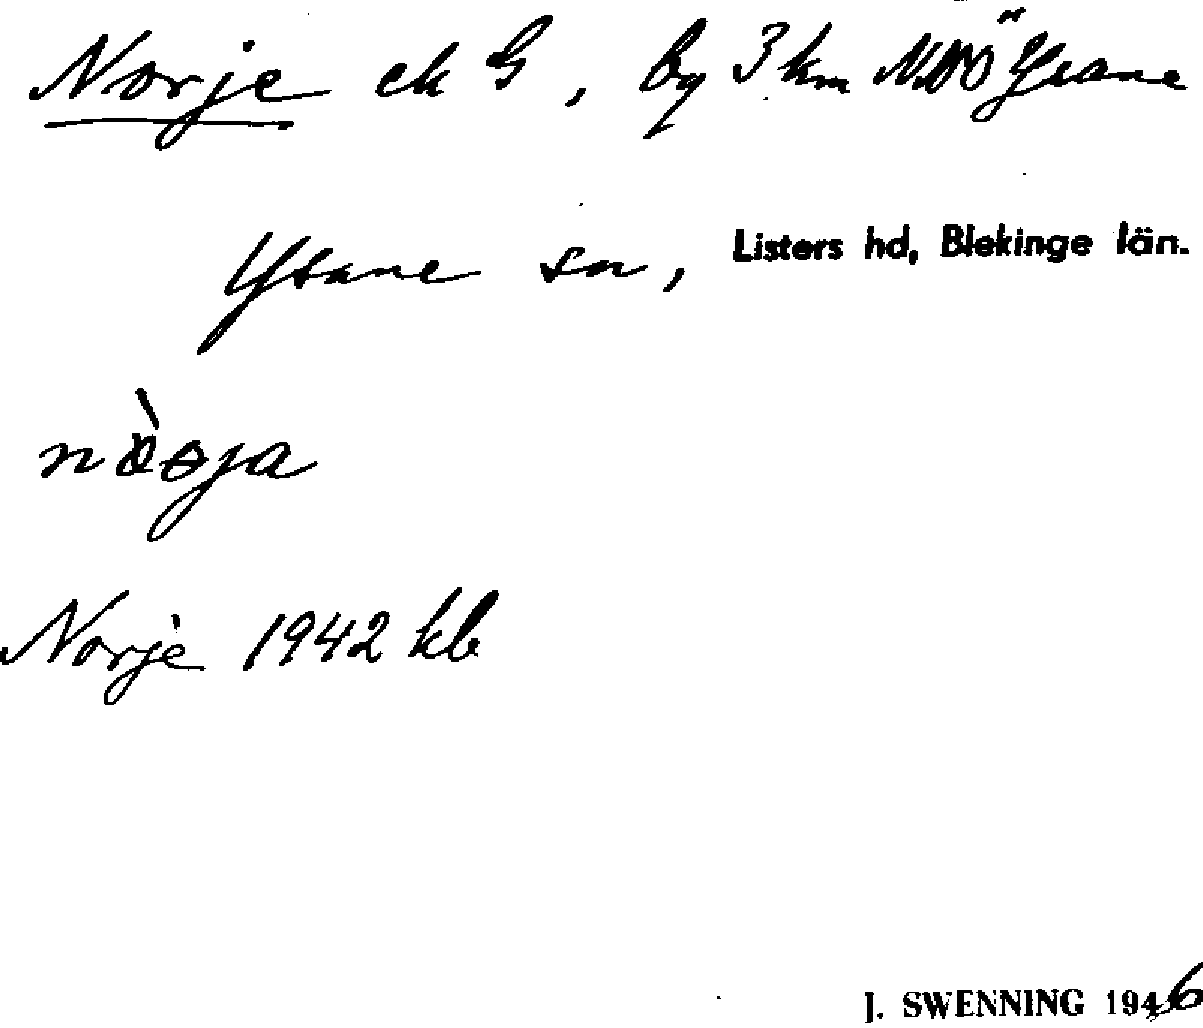 Norje ek G, by 3 km NNÖ Ysane
Ysane sn, Listers hd, Blekinge län.
Norje 1942 kb
J. SWENNING 1946